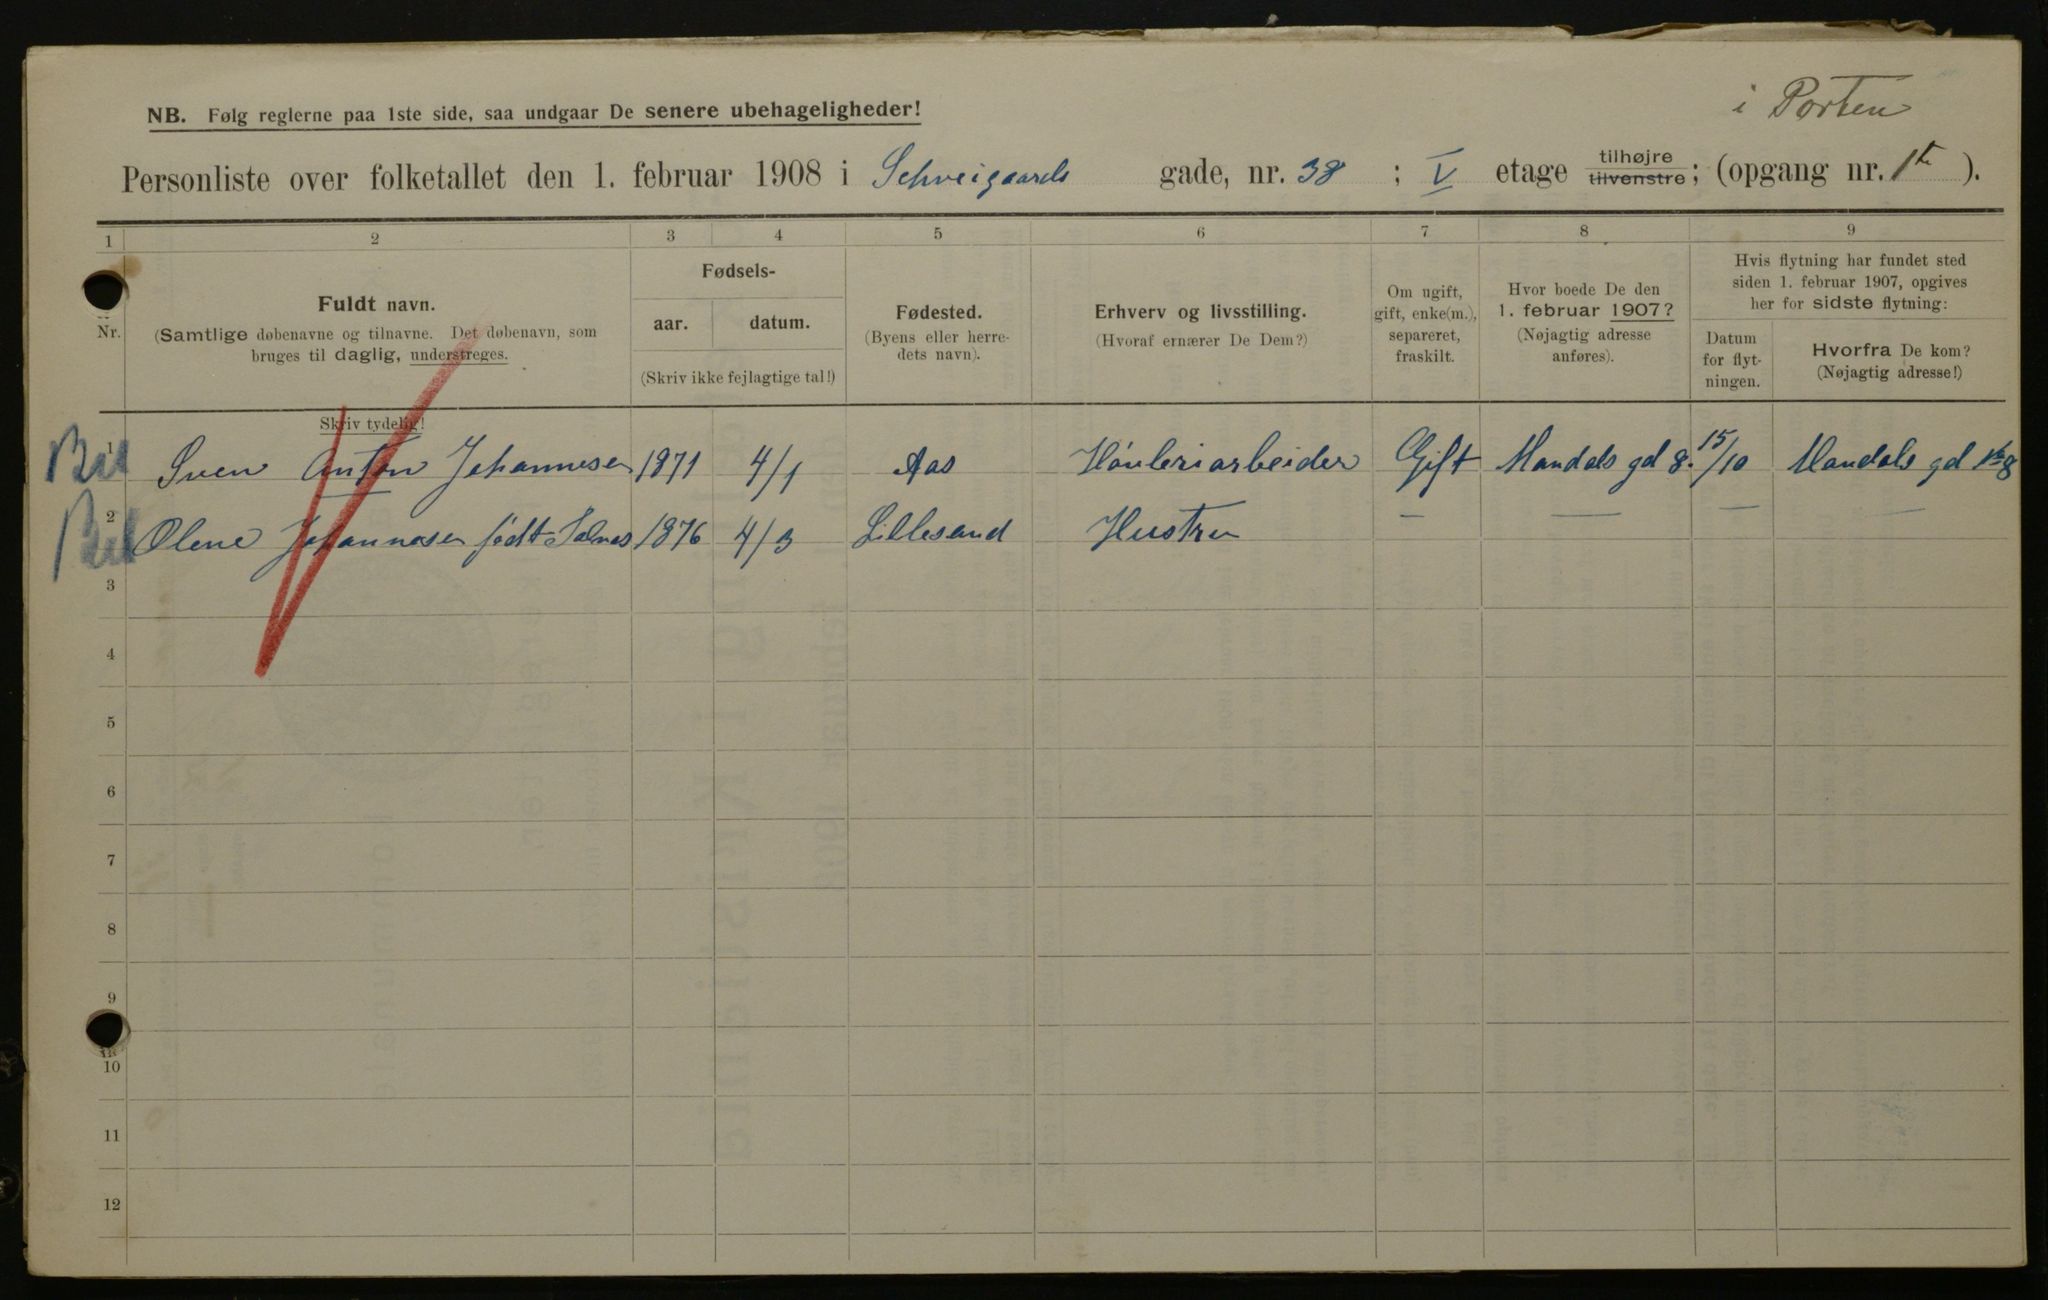 i Porten
NB. Følg reglerne paa 1ste side, saa undgaar De senere ubehageligheder!
Personliste over folketallet den 1. februar 1908 i Schweigaards gade, nr. 38 ; V etage tilhøjre tilvenstre; (opgang nr. 1te ).
1 2 3 4 5 6 7 8 9
Nr.
Fuldt navn.
(Samtlige døbenavne og tilnavne. Det døbenavn, som
bruges til daglig, understreges.
Skriv tydelig!
Fødsels-
aar. datum.
(Skriv ikke fejlagtige tal!)
Fødested.
(Byens eller herre-
dets navn).
Erhverv og livsstilling.
(Hvoraf ernærer De Dem?)
Om ugift,
gift, enke(m.),
separeret,
fraskilt.
Hvor boede De den
1. februar 1907?
(Nøjagtig adresse
anføres).
Hvis flytning har fundet sted
siden 1. februar 1907, opgives
her for sidste flytning:
Datum
for flyt-
ningen.
Hvorfra De kom?
(Nøjagtig adresse!)
1 Sven Anton Johannesen 1871 4/1 Aas Høvleriarbeider Gift Mandals gd 8. 15/10 Mandals gd 8
2 Olene Johannesen født 1876 4/3 Lillesand Hustru — — — —
3
4
5
6
7
8
9
10
11
12